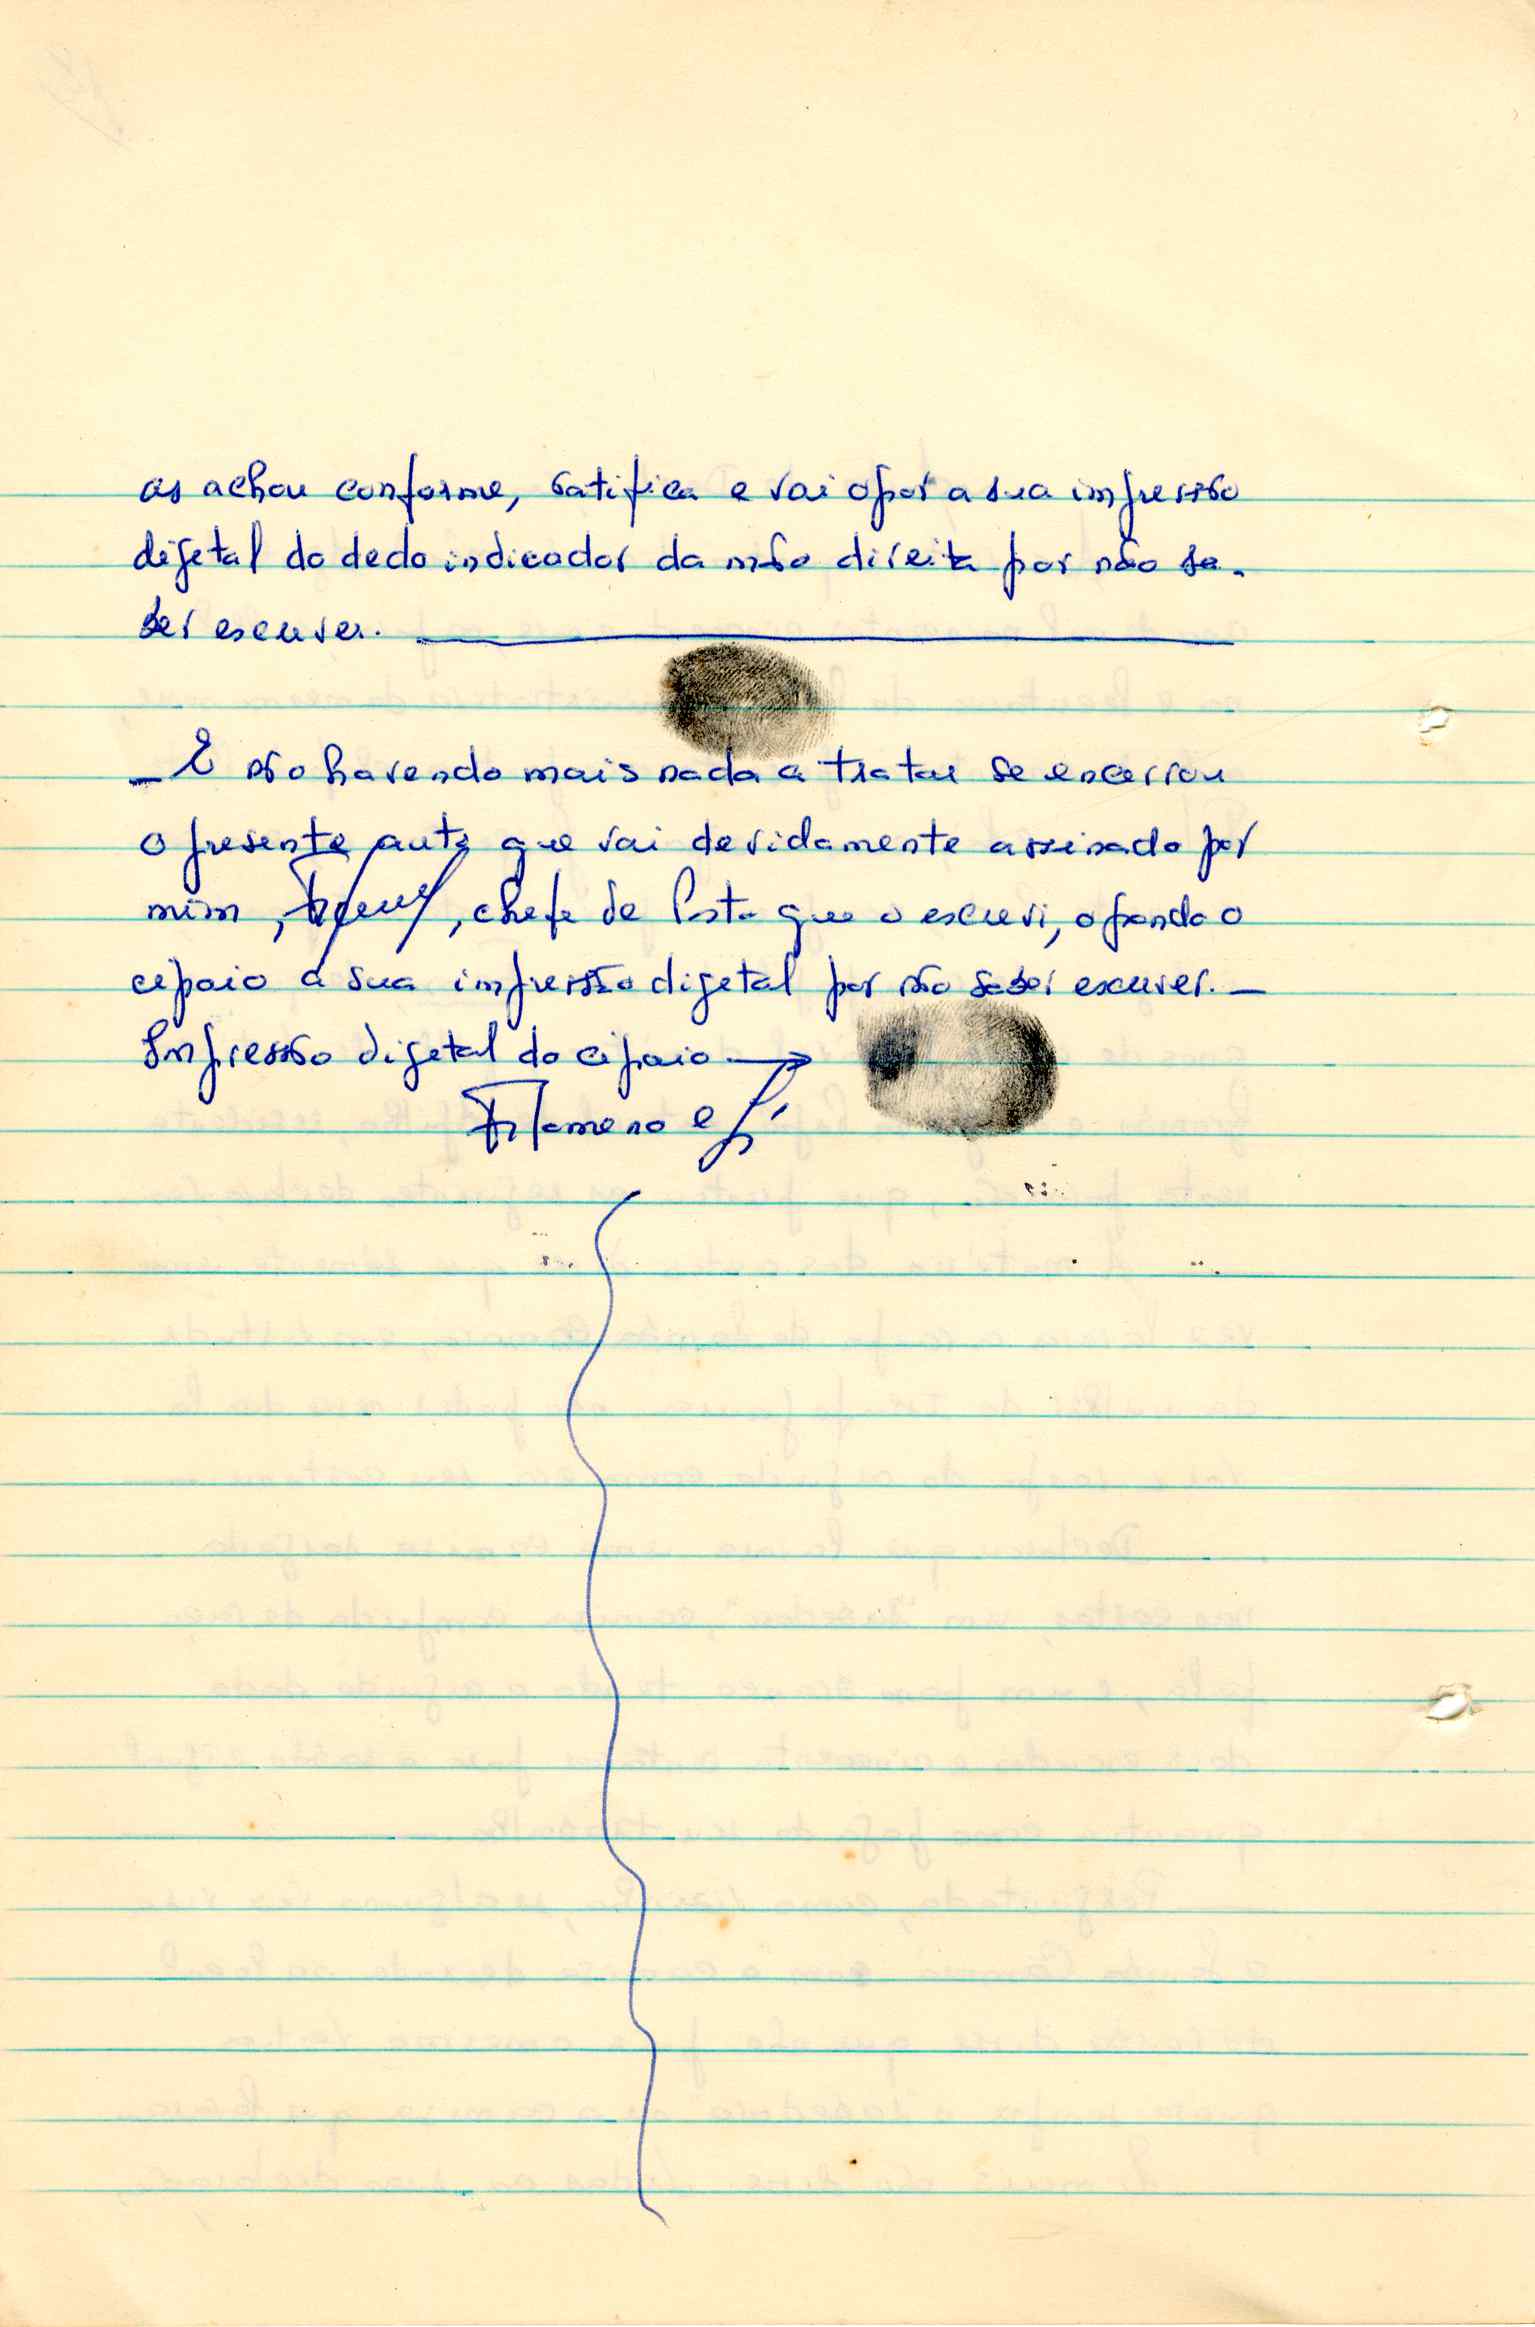 as achou conforme, ratifica e vai opor a sua impressão
digetal do dedo indicador da mão direita por não sa-
ber escrever.
— E não havendo mais nada a tratar se encerrou
o presente auto que vai devidamente assinado por
mim, , chefe de Posto que o escrevi, opondo o
cipaio a sua impressão digetal por não saber escrever. —
Impressão digetal do cipaio →
Filomeno e Sá